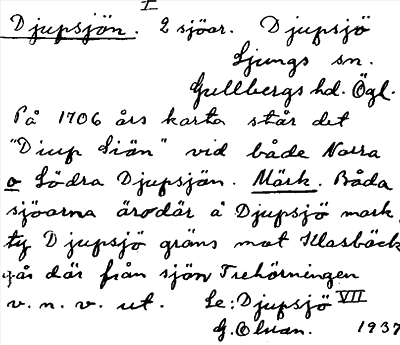 I
Djupsjön. 2 sjöar. Djupsjö
Ljungs sn.
Gullbergs hd. Ögl.
På 1706 års karta står det
"Diup Siän" vid både Norra
o Södra Djupsjön. Märk. Båda
sjöarna äro där å Djupsjö mark,
ty Djupsjö gräns mot Klasbäck
går där från sjön Trehörningen
v. n. v. ut. Se: Djupsjö VII
G. 1937